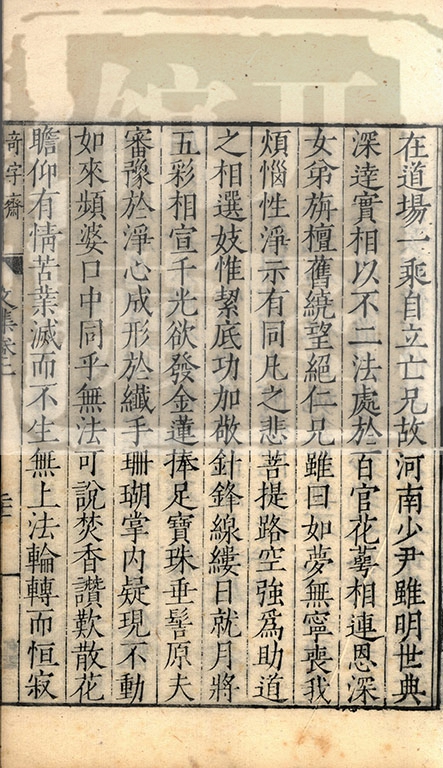 在道場一乘自立亡兄故河南少尹雖明世典
深達實相以不二法處於百官花萼相連恩深
女弟旃檀舊繞望絕仁兄雖曰如夢無寧喪我
煩惱性淨示有同凡之悲菩提路空強爲助道
之相選妓惟絜底功加敬針鋒線縷日就月將
五彩相宣千光欲發金蓮捧足寶珠垂髻原夫
審豫於淨心成形於纖手珊瑚掌內疑現不動
如來頻婆口中同乎無法可說焚香讚歎散花
瞻仰有情苦業滅而不生無上法輪轉而恒寂
奇字齋 文集卷二